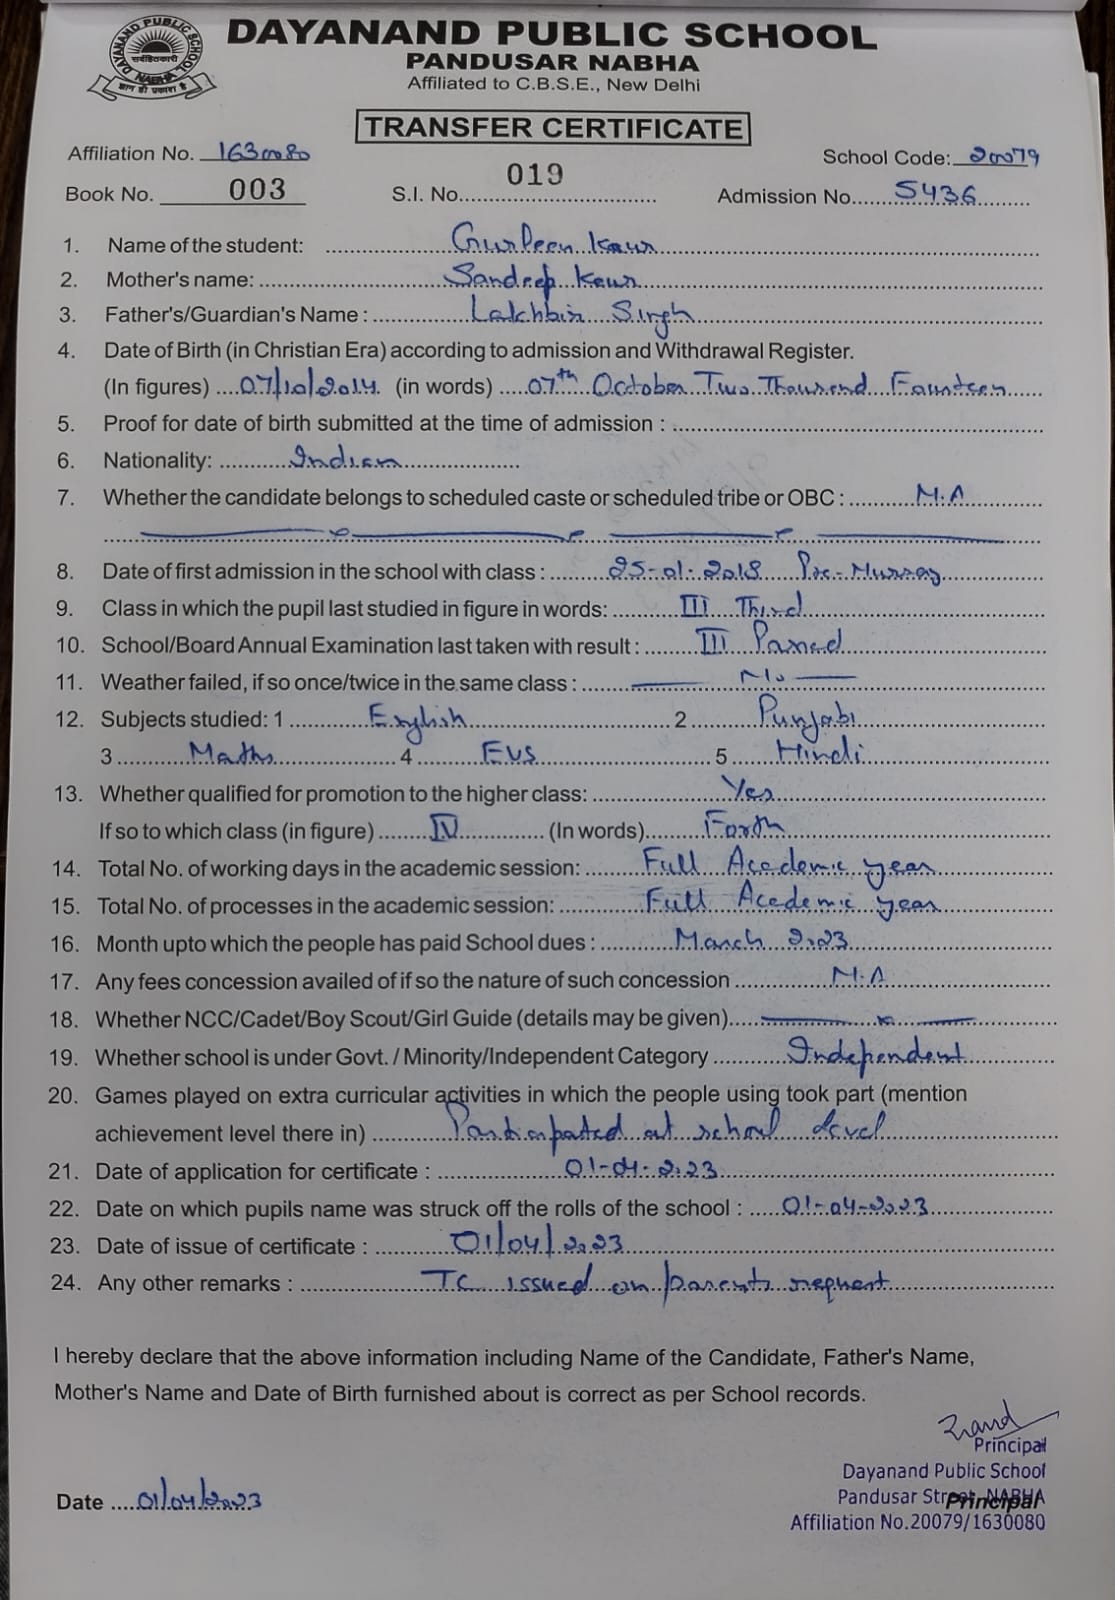 DAYANAND PUBLIC SCHOOL
PANDUSAR NABHA
Affiliated to C.B.S.E., New Delhi
DAYANAND PUBLIC SCHOOL
सर्वहितकारी
NABHA
ज्ञान ही प्रकाश है
TRANSFER CERTIFICATE
Affiliation No. 1630080 School Code: 20079
Book No. 003 S.I. No. 019 Admission No. 5436
1. Name of the student: Gurleen Kaur
2. Mother's name: Sandeep Kaur
3. Father's/Guardian's Name : Lakhbir Singh
4. Date of Birth (in Christian Era) according to admission and Withdrawal Register.
(In figures) 07/10/2014 (in words) 07th October Two Thousend Fourteen
5. Proof for date of birth submitted at the time of admission :
6. Nationality: Indian
7. Whether the candidate belongs to scheduled caste or scheduled tribe or OBC : N.A
8. Date of first admission in the school with class : 25-01-2018 Pre-Nursay
9. Class in which the pupil last studied in figure in words: III Third
10. School/Board Annual Examination last taken with result : III Passed
11. Weather failed, if so once/twice in the same class : No
12. Subjects studied: 1 English 2 Punjabi
3 Maths 4 EVS 5 Hindi
13. Whether qualified for promotion to the higher class: Yes
If so to which class (in figure) IV (In words) Forth
14. Total No. of working days in the academic session: Full Academic year
15. Total No. of processes in the academic session: Full Academic year
16. Month upto which the people has paid School dues : March 2023
17. Any fees concession availed of if so the nature of such concession N.A
18. Whether NCC/Cadet/Boy Scout/Girl Guide (details may be given)
19. Whether school is under Govt. / Minority/Independent Category Independent
20. Games played on extra curricular activities in which the people using took part (mention
achievement level there in) Participated at school level
21. Date of application for certificate : 01-04-2023
22. Date on which pupils name was struck off the rolls of the school : 01-04-2023
23. Date of issue of certificate : 01/04/2023
24. Any other remarks : TC issued on parents request
I hereby declare that the above information including Name of the Candidate, Father's Name,
Mother's Name and Date of Birth furnished about is correct as per School records.
Principal
Dayanand Public School
Date 01/04/2023
Pandusar Street, NABHA
Principal
Affiliation No.20079/1630080